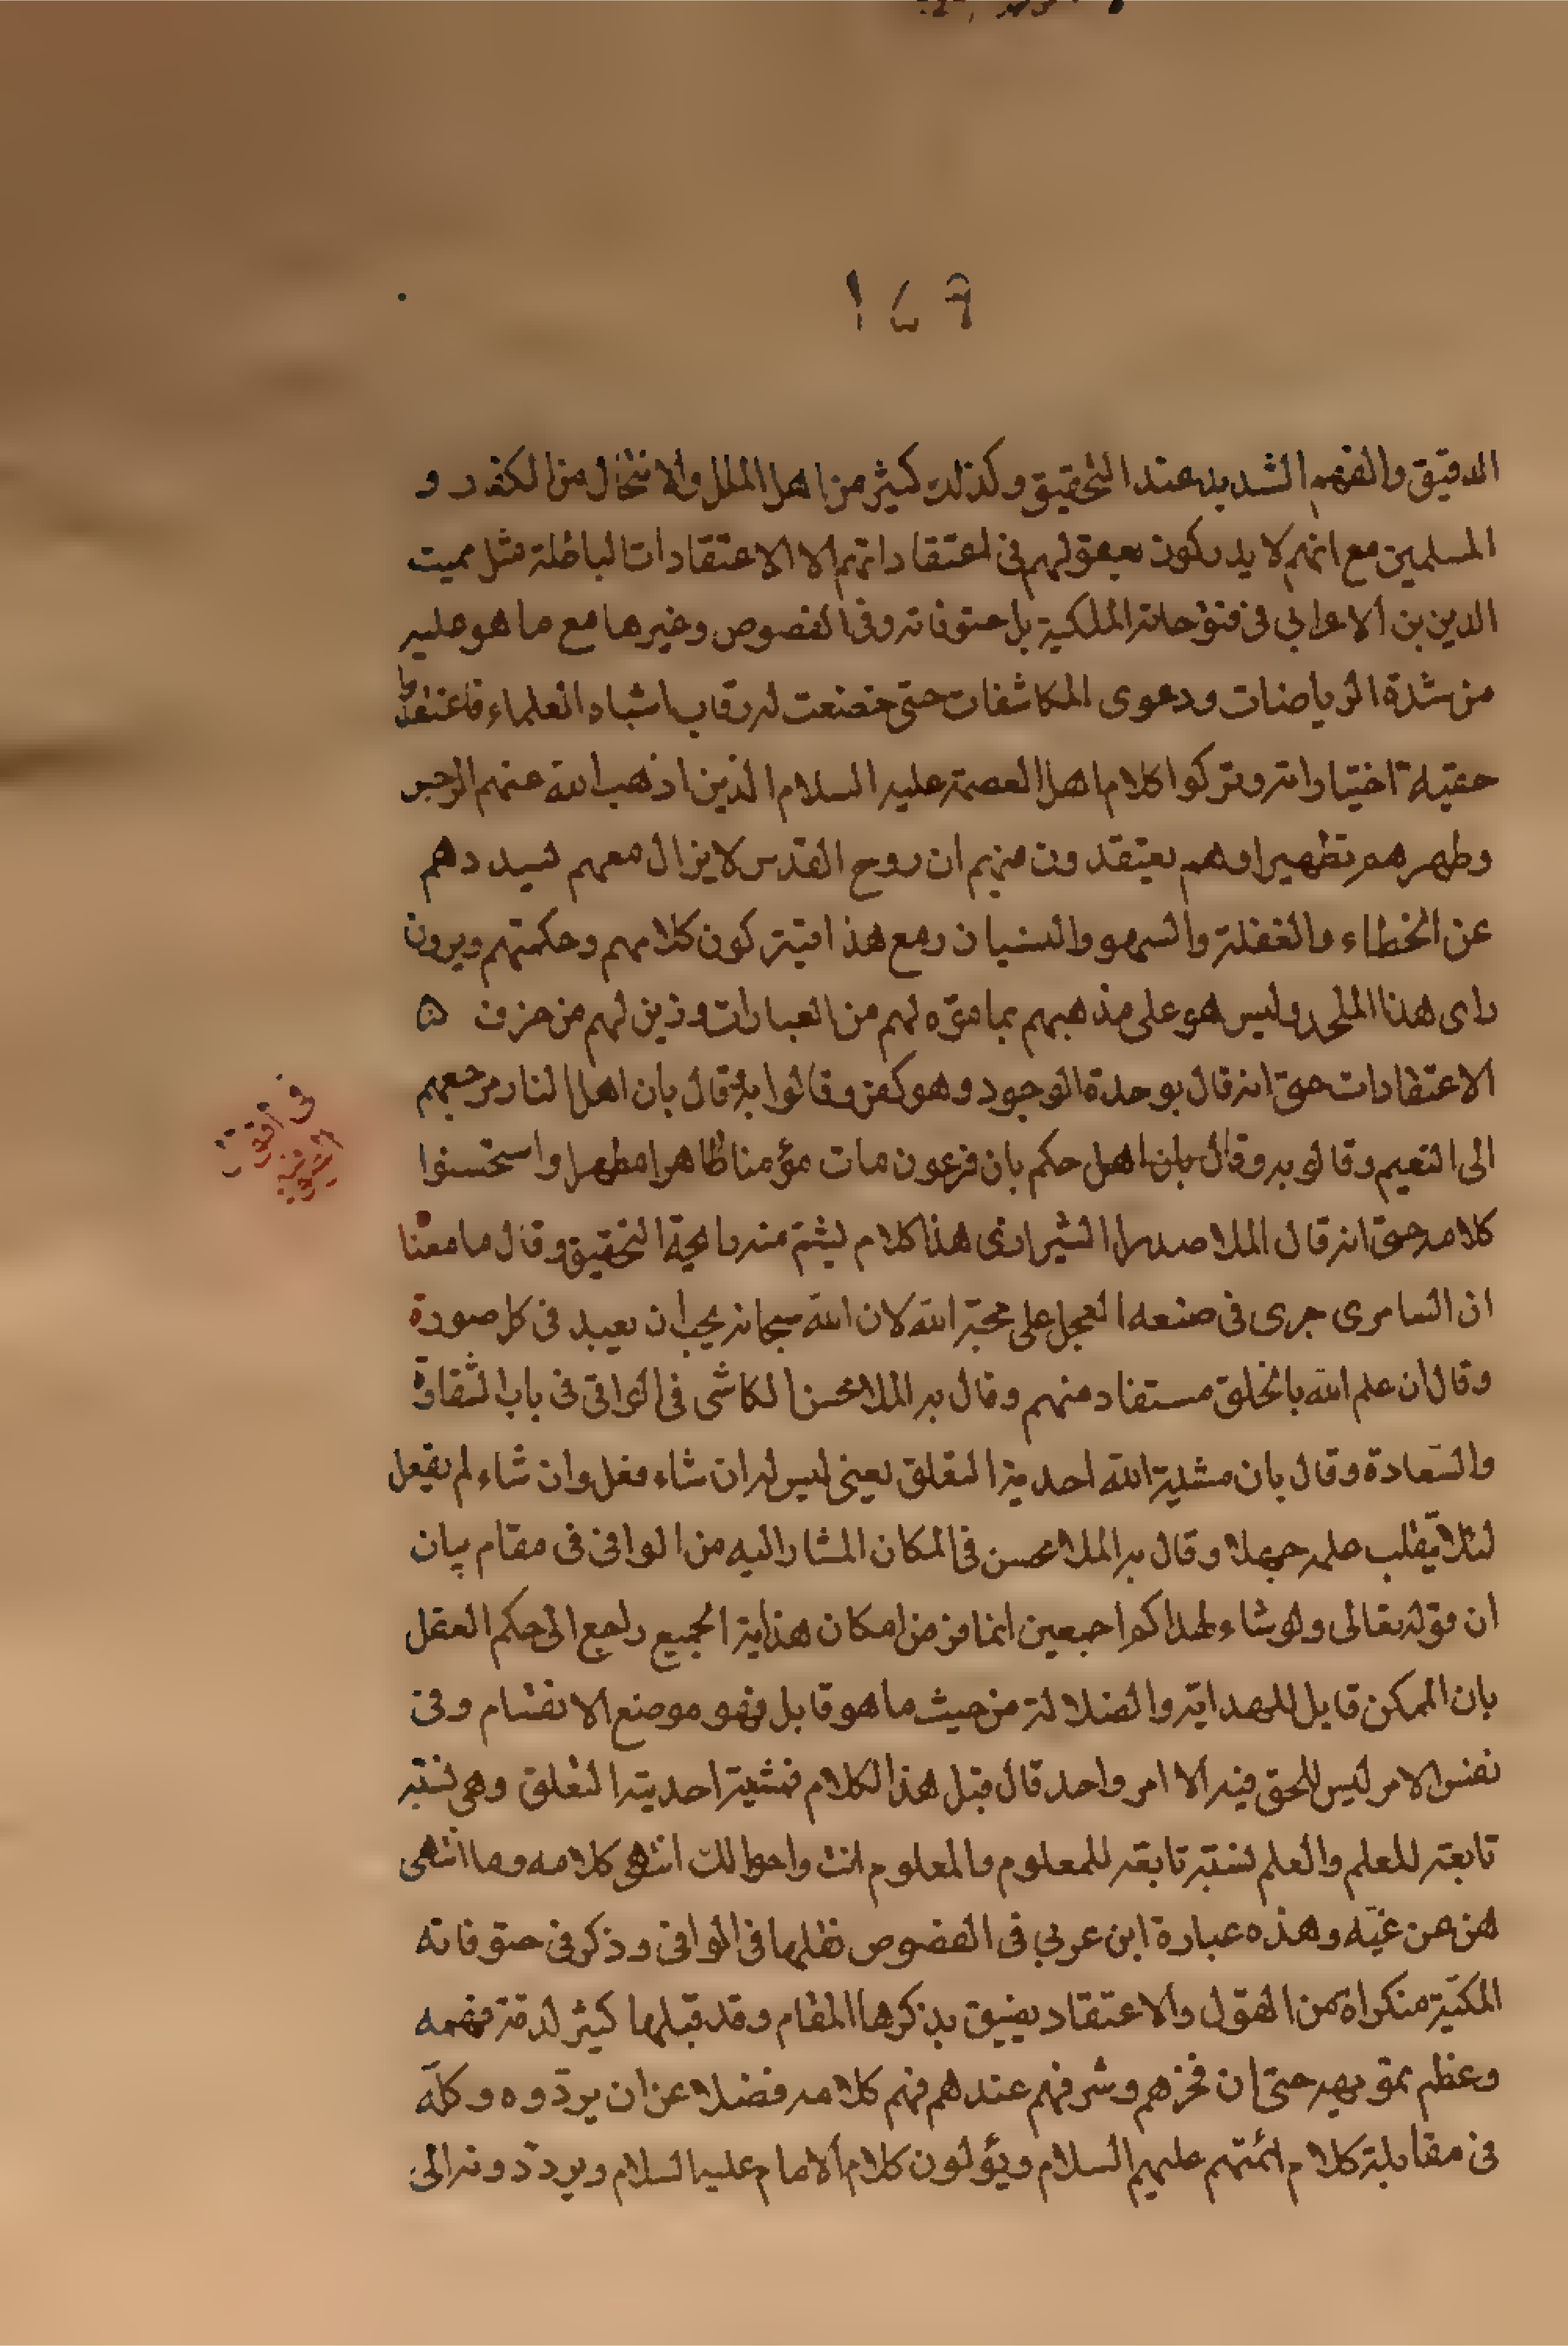 ١٤٦
الدقيق والفهم الشديد عند التحقيق وكذلك كثير من اهل الملل والانتحال من الكفار و
المسلمين مع انهم لا يدركون بعقولهم في اعتقاداتهم الا الاعتقادات الباطلة مثل مميت
الدين بن الاعرابي في فتوحاته الملكية بل حتوفاته وفي الفصوص وغيرها مع ما هو عليه
من شدة الرياضات ودعوى المكاشفات حتى خضعت له رقاب اشباه العلماء فاعتقدوا
حقية اختياراته وتركوا كلام اهل العصمة عليه السلام الذين اذهب الله عنهم الرجس
وطهرهم تطهيرا وهم يعتقدون منهم ان روح القدس لا يزال معهم ليسددهم
عن الخطاء والغفلة والسهو والنسيان ومع هذا فيتركون كلامهم وحكمتهم ويرون
راى هذا الملحد وليس هو على مذهبهم بما موّه لهم من العبارات وزين لهم من خزف
الاعتقادات حتى انه قال بوحدة الوجود وهو كفر وقالوا به وقال بان اهل النار مرجعهم
الى النعيم وقالو به وقال بان اهل حكم بان فرعون مات مؤمنا طاهرا مطهرا واستحسنوا
كلامه حتى انه قال الملا صدرا الشيرازى هذا كلام يشم منه رايحة التحقيق وقال ما معنا
ان السامرى جرى في صنعه العجل على محبة الله لان الله سبحانه يحب ان يعبد في كل صورة
وقال ان علم الله بالخلق مستفاد منهم وقال به الملا محسن الكاشى في الوافى في باب الشقاوة
والسّعادة وقال بان مشيئة الله احدية التعلق يعني ليس له ان شاء فعل وان شاء لم يفعل
لئلا ينقلب علمه جهلا وقال به الملا محسن في المكان المشار اليه من الوافى في مقام بيان
ان قوله تعالى ولو شاء لهداكم اجمعين انما فرض امكان هداية الجميع راجع الى حكم العقل
بان الممكن قابل للهداية والضلالة من حيث ما هو قابل فهو موضع الانقسام وفى
نفس الامر ليس للحق فيه الا امر واحد قال قبل هذا الكلام فمشيته احدية التعلق وهى نسبة
تابعة للعلم والعلم نسبة تابعة للمعلوم والمعلوم انت واحوالك انتهى كلامه وما انتهى
هن عن غيّه وهذه عبارة ابن عربي في الفصوص نقلها في الوافى وذكر في حتوفاته
المكيّة منكرات من القول والاعتقاد يضيق بذكرها المقام وقد قبلها كثير لدقة فهمه
وعظم تمويهه حتى ان فخرهم وشرفهم عندهم فهم كلامه فضلا عن ان يردّوه وكلّه
في مقابلة كلام ائمتهم عليهم السلام ويؤلون كلام الامام عليه السلام ويردّدونه الى